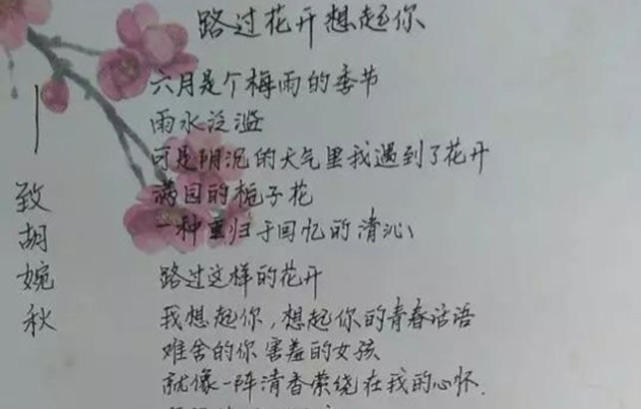 路过花开想起你
六月是个梅雨的季节
雨水泛滥
可是阴沉的天气里我遇到了花开
满园的栀子花
一种重归于回忆的清沁
路过这样的花开
我想起你,想起你的青春话语
难舍的你害羞的女孩
就像一阵清香萦绕在我的心怀.
—致胡婉秋